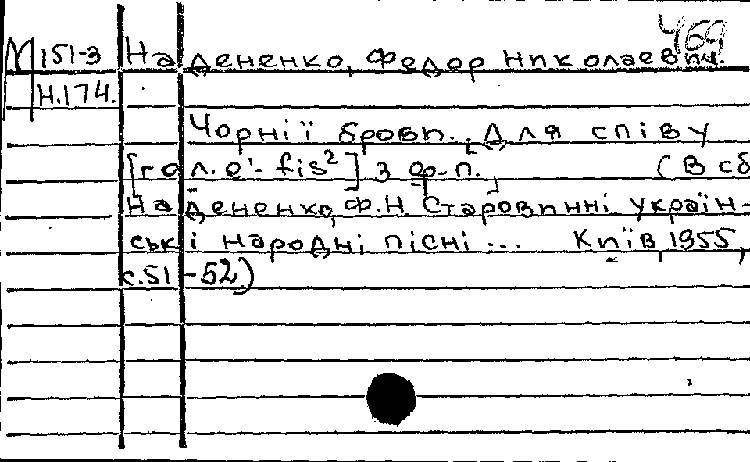 469
М 151-3 Надененко, Федор Николаевич.
Н.174.
Чорнії брови. [Для співу
[гол. e'- fis²] з ф-п.] (В сб
Надененко, Ф.Н. Старовинні україн-
ські народні пісні ... Київ, 1955,
с.51-52)